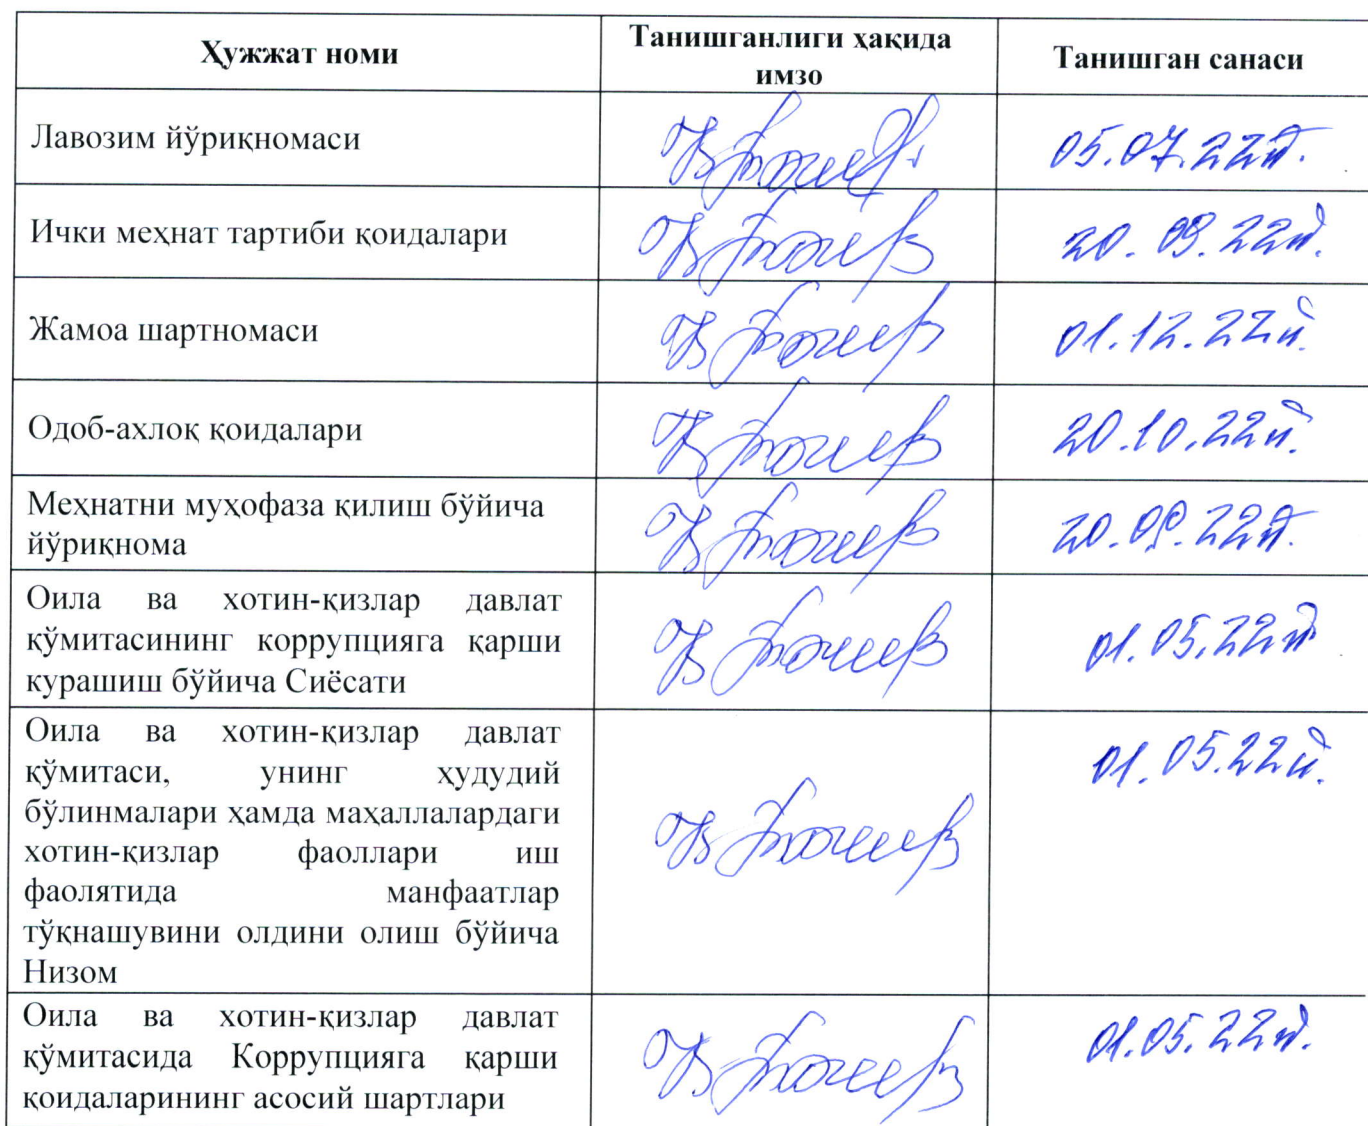 Ҳужжат номи
Танишганлиги ҳақида
имзо
Танишган санаси
Лавозим йўриқномаси
05.07.22й.
Ички меҳнат тартиби қоидалари
20. 09. 22й.
Жамоа шартномаси
01.12.22й.
Одоб-ахлоқ қоидалари
20.10.22й.
Меҳнатни муҳофаза қилиш бўйича
йўриқнома
20.09.22й.
Оила ва хотин-қизлар давлат
қўмитасининг коррупцияга қарши
курашиш бўйича Сиёсати
01.05.22й
Оила ва хотин-қизлар давлат
қўмитаси, унинг ҳудудий
бўлинмалари ҳамда маҳаллалардаги
хотин-қизлар фаоллари иш
фаолятида манфаатлар
тўқнашувини олдини олиш бўйича
Низом
01.05.22й.
Оила ва хотин-қизлар давлат
қўмитасида Коррупцияга қарши
қоидаларининг асосий шартлари
01.05.22й.